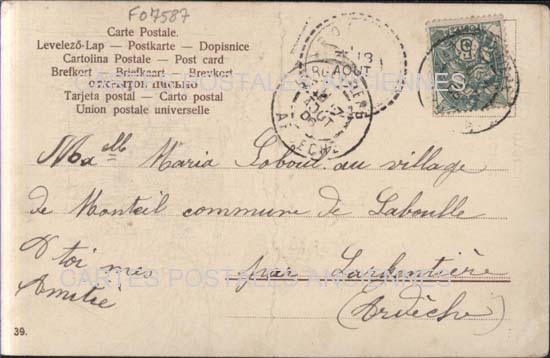 F07587
Carte Postale.
Levelező-Lap — Postkarte — Dopisnice
Cartolina Postale — Post card
Brefkort — Briefkaart — Brevkort
ОТКРЫТОЕ ПИСЬМО
Tarjeta postal — Carto postal
Union postale universelle
18
AOUT
ARDECHE
5
CARTES POSTALES ANCIENNES
Melle Maria Laboul au village
de Monteil commune de Laboulle
par Largentière
(Ardèche)
à toi mes
Amitie
CARTES POSTALES ANCIENNES
39.